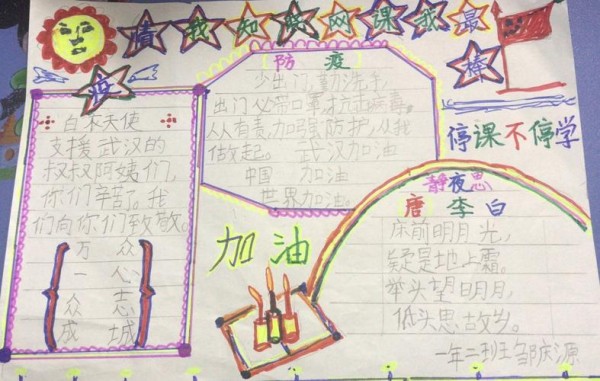 疫情我知晓网课我最棒
白衣天使
支援武汉的
叔叔阿姨们,
你们辛苦了。我
们向你们致敬。
万 众
一 心
众 志
成 城
防 疫
少出门,勤洗手,
出门必带口罩,抗击病毒。
人人有责,加强防护,从我
做起。 武汉加油
中国 加油
世界加油。
停课不停学
加油
静夜思
唐 李白
床前明月光,
疑是地上霜。
举头望明月,
低头思故乡。
一年二班邹庆源